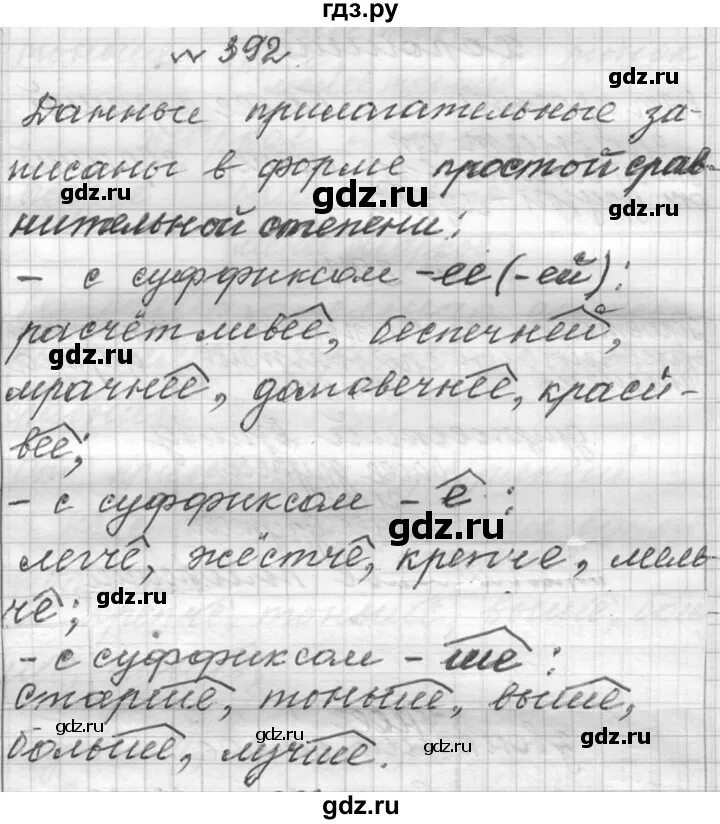 гдз.ру
№ 392
gdz.ru
Данные прилагательные за-
писаны в форме простой срав-
gdz.ru gdz.ru gdz.ru
нительной степени:
- с суффиксом -ее (-ей):
расчётливее, беспечней,
gdz.ru gdz.ru
мрачнее, долговечнее, краси-
вее;
- с суффиксом -е:
gdz.ru
легче, жёстче, крепче, мель-
gdz.ru
че;
- с суффиксом -ше:
старше, тоньше, выше,
gdz.ru gdz.ru gdz.ru
больше, лучше.
gdz.ru